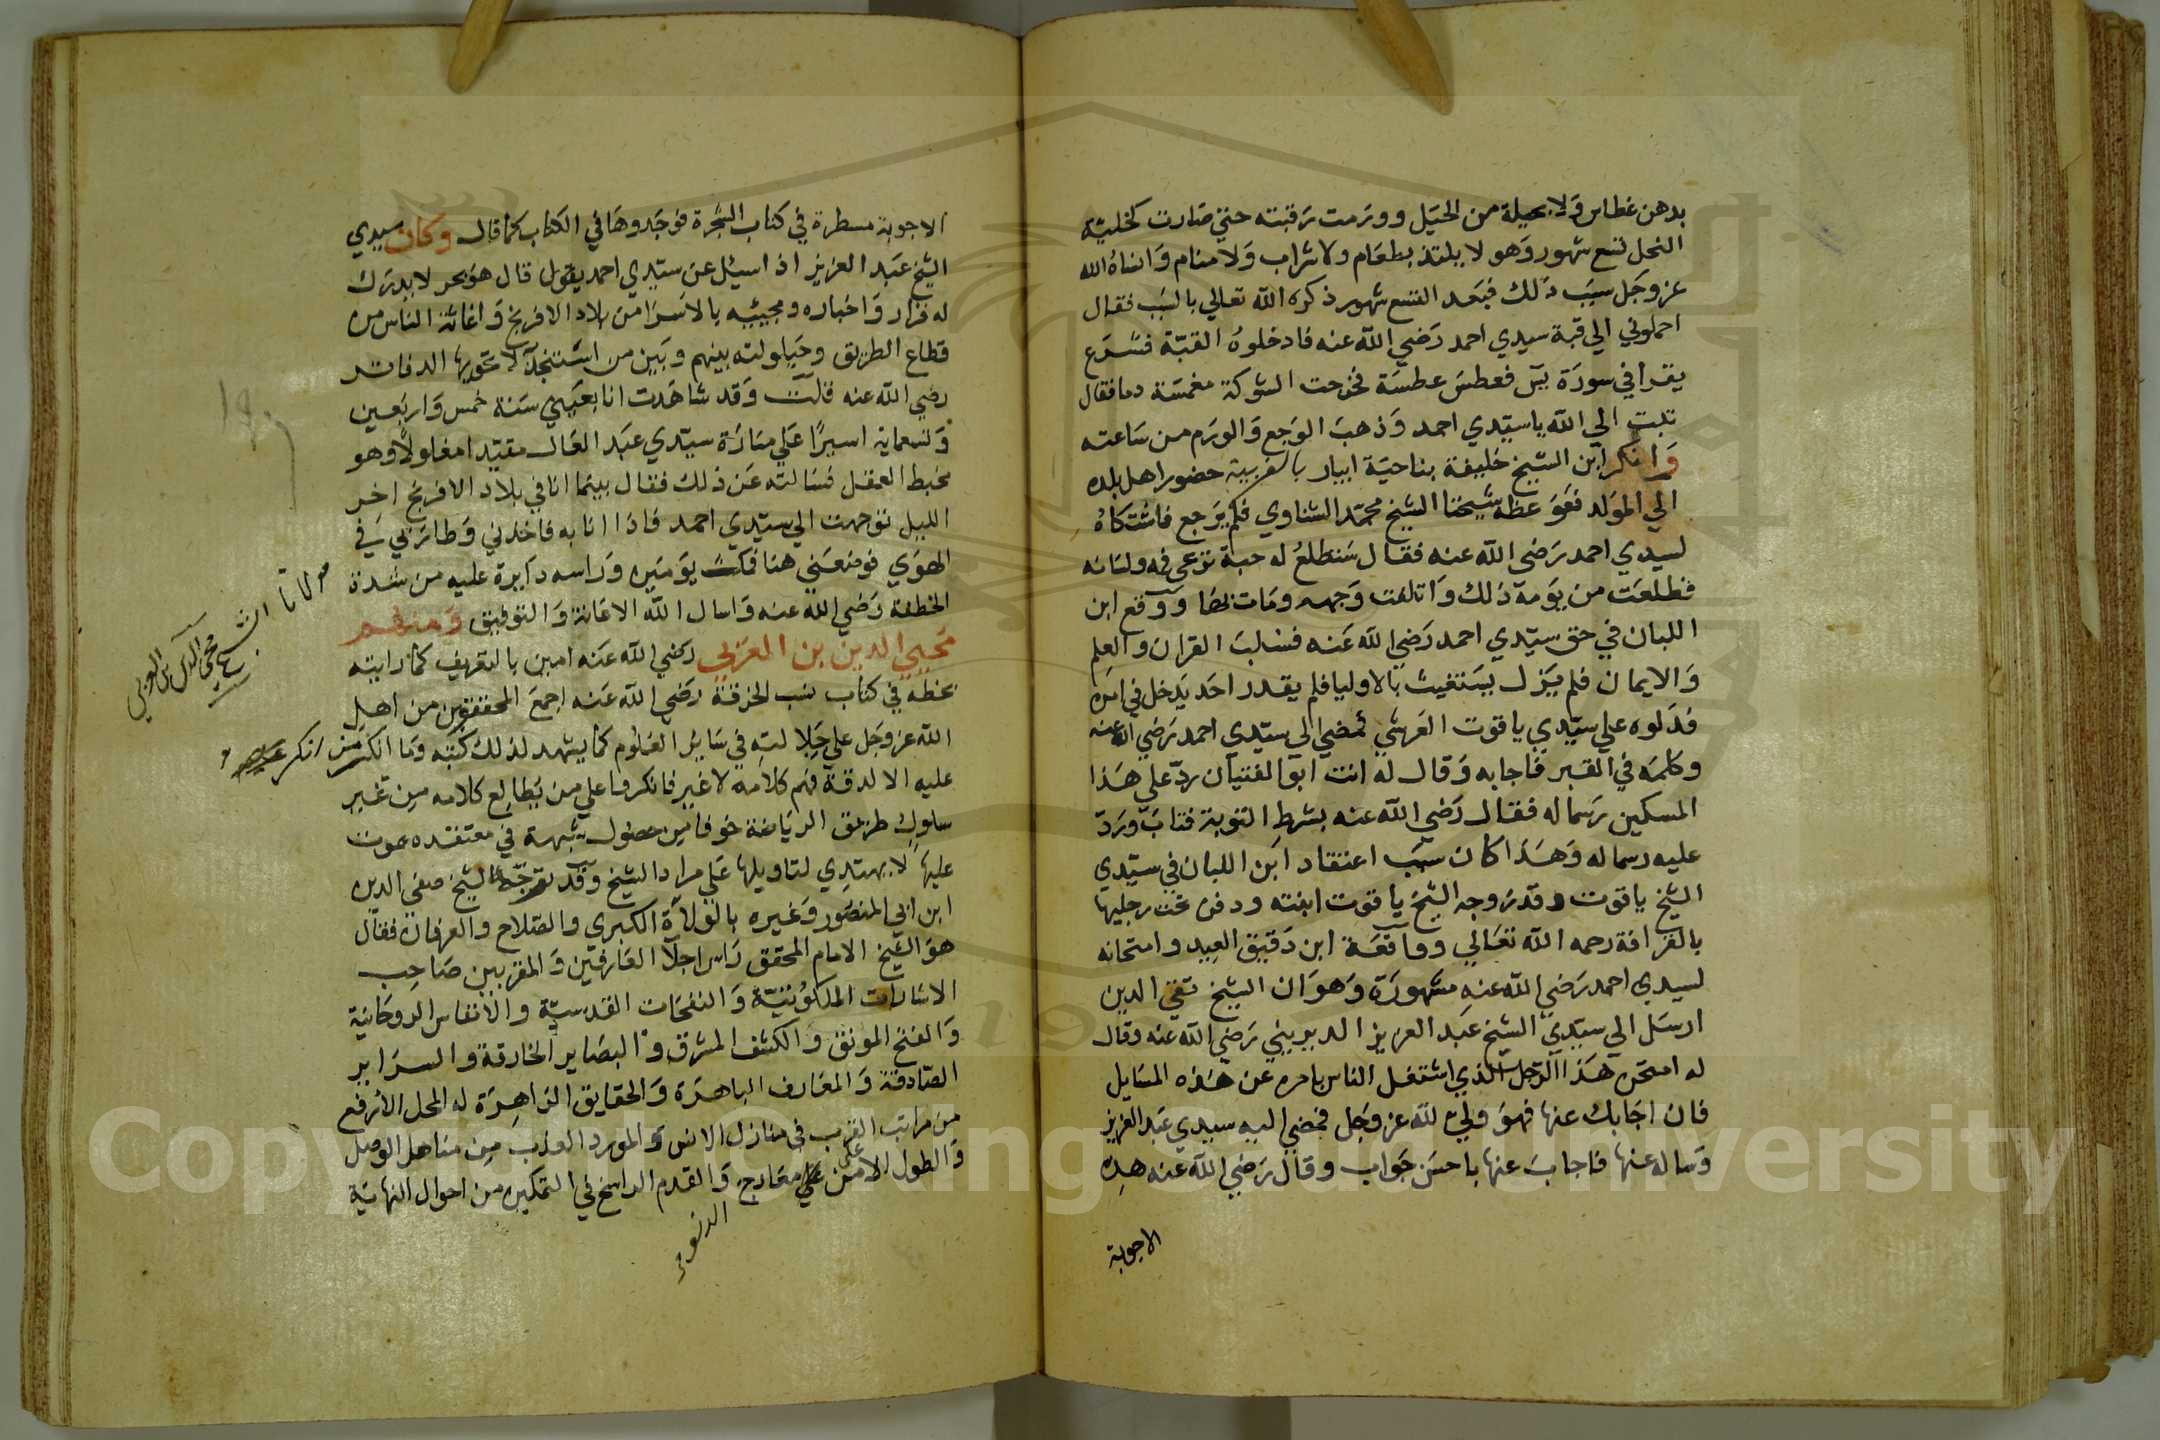 بدهن عطاس ولا بحيلة من الحيل وورمت رقبته حتي صارت كخلية
النحل تسع شهور وهو لا يلتذ بطعام ولا شراب ولا منام وانساه الله
عز وجل سبب ذلك فبعد التسع شهور ذكره الله تعالي بالسبب فقال
احملوني الي قبة سيدي احمد رضي الله عنه فادخلوه القبة فشرع
يقرا في سورة يس فعطس عطسة فخرجت الشوكة مغمسة دما فقال
تبت الي الله يا سيدي احمد وذهب الوجع والورم من ساعته
وانكر ابن الشيخ خليفة بناحية ابيار بالغربية حضور اهل بلده
الي المولد فوعظه شيخنا الشيخ محمد الشناوي فلم يرجع فاشتكاه
لسيدي احمد رضي الله عنه فقال ستطلع له حبة ترعي فمه ولسانه
فطلعت من يومه ذلك واتلفت وجهه ومات بها ووقع ابن
اللبان في حق سيدي احمد رضي الله عنه فسلب القران والعلم
والايمان فلم يزل يستغيث بالاوليا فلم يقدر احد يدخل في امره
فدلوه علي سيدي ياقوت العرشي فمضي الي سيدي احمد رضي الله عنه
وكلمه في القبر فاجابه وقال له انت ابو الفتيان رد علي هذا
المسكين رسماله فقال رضي الله عنه بشرط التوبة فتاب ورد
عليه رسماله وهذا كان سبب اعتقاد ابن اللبان في سيدي
الشيخ ياقوت وقد زوجه الشيخ ياقوت ابنته ودفن تحت رجليها
بالقرافة رحمه الله تعالي وواقعة ابن دقيق العيد وامتحانه
لسيدي احمد رضي الله عنه مشهورة وهو ان الشيخ تقي الدين
ارسل الي سيدي الشيخ عبد العزيز الديريني رضي الله عنه وقال
له امتحن هذا الرجل الذي اشتغل الناس بامره عن هذه المسايل
فان اجابك عنها فهو ولي لله عز وجل فمضي اليه سيدي عبد العزيز
وساله عنها فاجاب عنها باحسن جواب وقال رضي الله عنه هذه
الاجوبة
الاجوبة مسطرة في كتاب الشجرة فوجدوها في الكتاب كما قال وكان سيدي
الشيخ عبد العزيز اذا سئل عن سيدي احمد يقول قال هو بحر لا يدرك
له قرار واخباره ومجيئه بالاسرا من بلاد الافرنج واغاثة الناس من
قطاع الطريق وحيلولته بينهم وبين من استنجد به لا تحويها الدفاتر
رضي الله عنه قلت وقد شاهدت انا بعيني سنة خمس واربعين
وتسعماية اسيرا علي منارة سيدي عبد العال مقيدا مغلولا وهو
مخبط العقل فسالته عن ذلك فقال بينما انا في بلاد الافرنج اخر
الليل توجهت الي سيدي احمد فاذا انا به فاخذني وطار بي في
الهوي فوضعني هنا فمكث يومين وراسه دايرة عليه من شدة
الخطفة رضي الله عنه واسال الله الاعانة والتوفيق ومنهم
محيي الدين بن العربي رضي الله عنه امين بالتعريف كما رايته
بخطه في كتاب نسب الخرقة رضي الله عنه اجمع المحققون من اهل
الله عز وجل علي جلالته في ساير العلوم كما يشهد لذلك كتبه وما انكر من انكر
عليه الا لدقة فهم كلامه لا غير فانكروا علي من يطالع كلامه من غير
سلوك طريق الرياضة خوفا من حصول شبهة في معتقده يموت
عليها لا يهتدي لتاويلها علي مراد الشيخ وقد ترجمه الشيخ صفي الدين
ابن ابي المنصور وغيره بالولاية الكبري والصلاح والعرفان فقال
هو الشيخ الامام المحقق راس اجلا العارفين والمقربين صاحب
الاشارات الملكوتية والنفحات القدسية والانفاس الروحانية
والفتح المونق والكشف المشرق والبصاير الخارقة والسراير
الصادقة والمعارف الباهرة والحقايق الزاهرة له المحل الارفع
من مراتب القرب في منازل الانس والمورد العذب من مناهل الوصل
والطول الاعلي من معارج الدنو والقدم الراسخ في التمكين من احوال النهاية
مولانا الشيخ محي الدين بن العربي